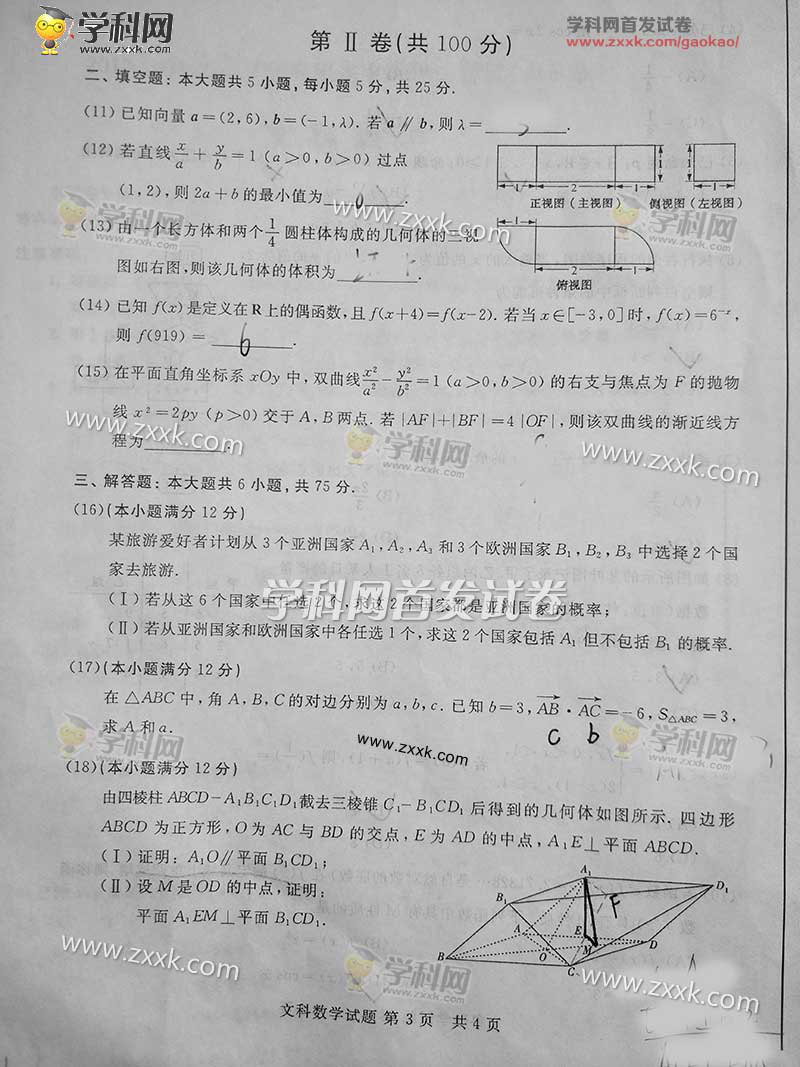 学科网
www.zxxk.com
学科网首发试卷
www.zxxk.com/gaokao/
第 Ⅱ 卷(共 100 分)
二、填空题：本大题共 5 小题，每小题 5 分，共 25 分.
(11) 已知向量 a=(2,6), b=(-1,λ). 若 a∥b, 则 λ=________.
(12) 若直线 x/a + y/b = 1 (a>0, b>0) 过点
(1,2), 则 2a+b 的最小值为________.
1
1
1
2
1
1
正视图(主视图)
侧视图(左视图)
(13) 由一个长方体和两个 1/4 圆柱体构成的几何体的三视
图如右图，则该几何体的体积为________.
1
2
1
俯视图
(14) 已知 f(x) 是定义在 R 上的偶函数，且 f(x+4)=f(x-2). 若当 x∈[-3,0] 时，f(x)=6⁻ˣ,
则 f(919) = 6.
(15) 在平面直角坐标系 xOy 中，双曲线 x²/a² - y²/b² = 1 (a>0, b>0) 的右支与焦点为 F 的抛物
线 x²=2py (p>0) 交于 A, B 两点. 若 |AF|+|BF|=4|OF|, 则该双曲线的渐近线方
程为________.
三、解答题：本大题共 6 小题，共 75 分.
(16) (本小题满分 12 分)
某旅游爱好者计划从 3 个亚洲国家 A₁, A₂, A₃ 和 3 个欧洲国家 B₁, B₂, B₃ 中选择 2 个国
家去旅游.
学科网首发试卷
(Ⅰ) 若从这 6 个国家中任选 2 个，求这 2 个国家都是亚洲国家的概率；
(Ⅱ) 若从亚洲国家和欧洲国家中各任选 1 个，求这 2 个国家包括 A₁ 但不包括 B₁ 的概率.
(17) (本小题满分 12 分)
在 △ABC 中，角 A, B, C 的对边分别为 a, b, c. 已知 b=3, AB·AC=-6, S△ABC=3,
求 A 和 a.
c b
www.zxxk.com
(18) (本小题满分 12 分)
由四棱柱 ABCD-A₁B₁C₁D₁ 截去三棱锥 C₁-B₁CD₁ 后得到的几何体如图所示. 四边形
ABCD 为正方形，O 为 AC 与 BD 的交点，E 为 AD 的中点，A₁E⊥平面 ABCD.
(Ⅰ) 证明：A₁O∥平面 B₁CD₁；
(Ⅱ) 设 M 是 OD 的中点，证明：
平面 A₁EM⊥平面 B₁CD₁.
A₁
D₁
B₁
F
A
E
M
D
B
O
C
文科数学试题 第 3 页 共 4 页